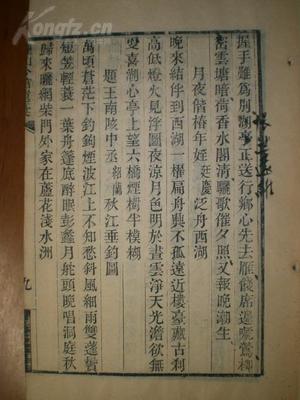 握手難爲別湖亭正送行鄉心先去雁餞席遲啼鶯柳
密雲塘暗荷香水閣清驪歌催夕照又報晚潮生
月夜偕椿年姪 廷慶 泛舟西湖
晚來結伴到西湖一櫂扁舟興不孤遠近樓臺藏古刹
高低燈火見浮圖夜涼月色明於晝雲淨天光澹欲無
更喜湖心亭上望六橋煙柳半模糊
題王南陔中丞 紹蘭 秋江垂釣圖
萬頃蒼茫下釣鉤煙波江上不知愁斜風細雨雙蓬鬢
短笠輕蓑一葉舟篷底醉眠彭蠡月舵頭晚唱洞庭秋
歸來曬網柴門外家在蘆花淺水洲
九